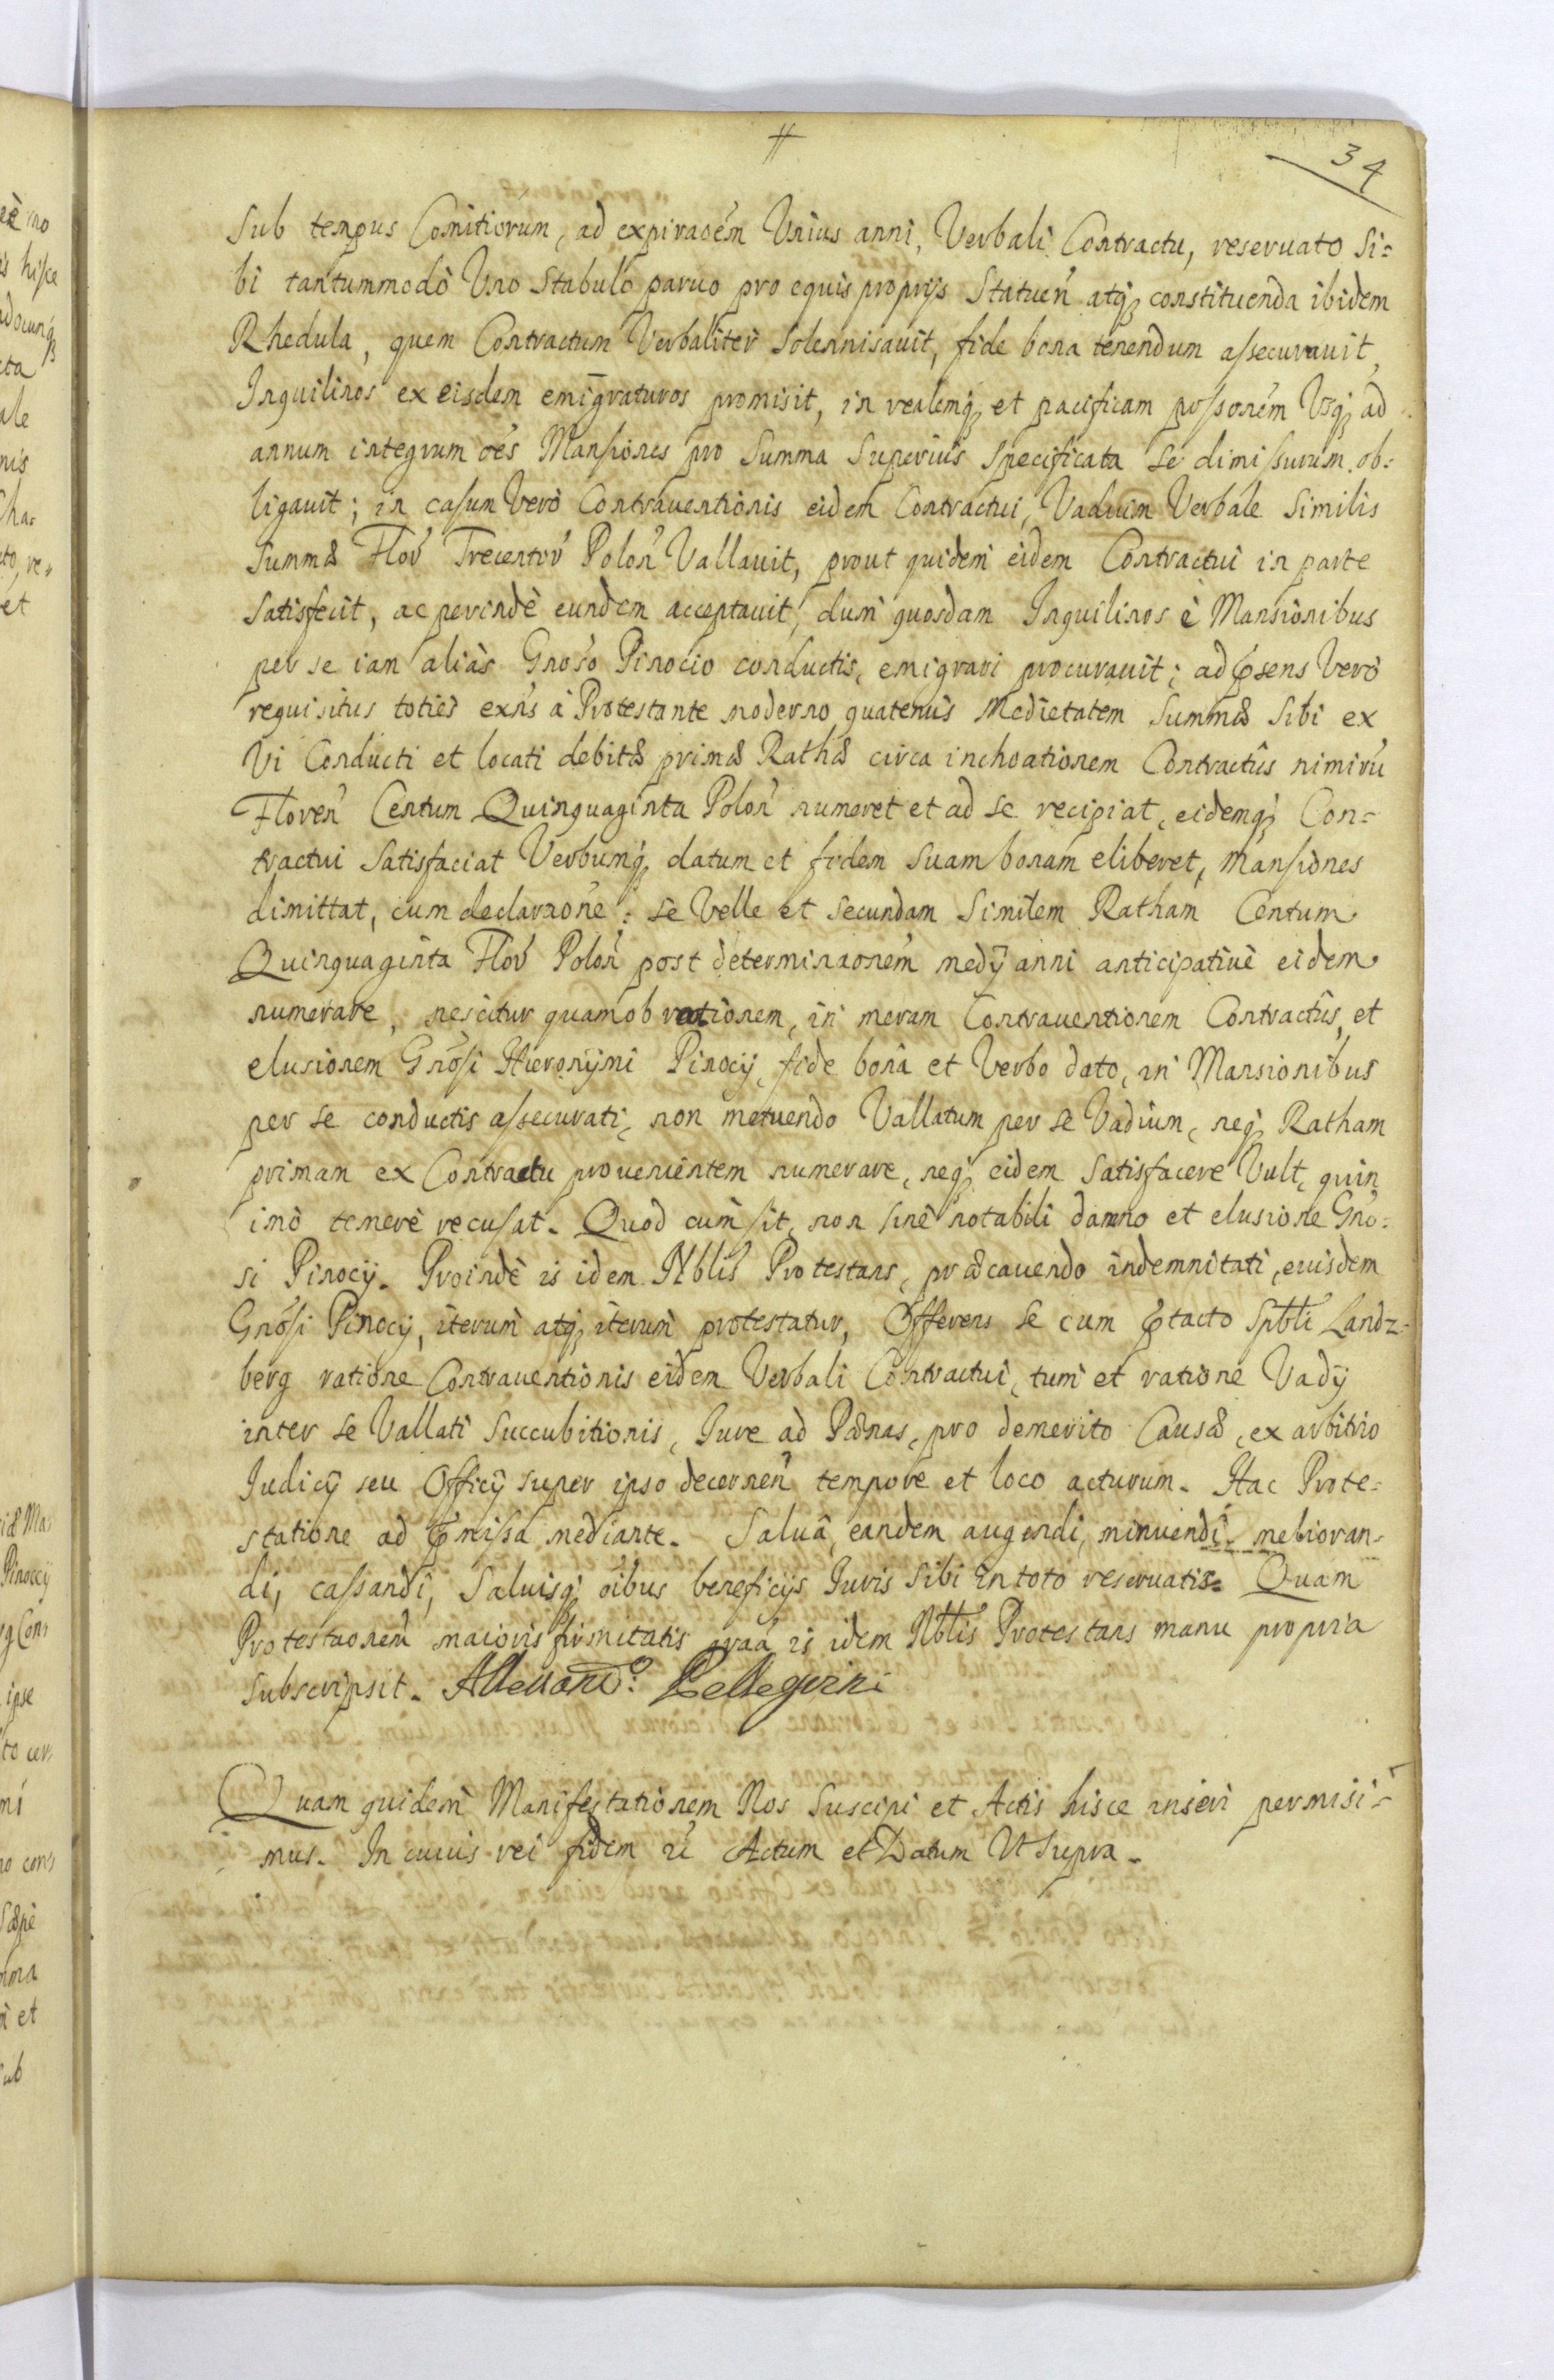 34
Sub tempus Comitiorum, ad expiraoem Unius anni, Verbali Contractu, reseruato Si=
bi tantummodò Uno Stabulo paruo pro equis proprijs Statuen atq₃ constituenda ibidem
Rhedula, quem Contractum Verbaliter Solennisauit, fide bona tenendum assecurauit,
Inquilinos ex eisdem emigraturos promisit, in realemq₃ et pacificam possonem Usq₃ ad
annum integrum oēs Mansiones pro Summa Superius Specificata se dimissurum ob=
ligauit; in casum Verò Contrauentionis eidem Contractui, Vadium Verbale Similis
Summæ Flor Trecentor Polon Vallauit, prout quidem eidem Contractui in parte
Satisfecit, ac perindè eundem acceptauit, dum quosdam Inquilinos è Mansionibus
per se iam aliàs Gnoso Pinocio conductis, emigrari procurauit; ad p̄sens Verò
requisitus toties exñs à Protestante moderno quatenus Medietatem Summæ Sibi ex
Vi Conducti et locati debitæ primæ Rathæ circa inchoationem Contractûs nimirū
Floren Centum Quinquaginta Polon numeret et ad se recipiat, eidemq₃ Con=
tractui Satisfaciat Verbumq₃ datum et fidem Suam bonam eliberet, Mansiones
dimittat, cum declaraone: se Velle et Secundam Similem Ratham Centum
Quinquaginta Flor Polon post determinaonem medij anni anticipatiuè eidem
numerare, nescitur quamob rationem, in meram Contrauentionem Contractûs, et
elusionem Gnosi Hieronymi Pinocij, fide bonâ et Verbo dato, in Mansionibus
per se conductis assecurati, non metuendo Vallatum per se Vadium, neq₃ Ratham
primam ex Contractu prouenientem numerare, neq₃ eidem Satisfacere Vult, quin
imò temerè recusat. Quod cum sit, non sinè notabili damno et elusione Gno=
si Pinocij. Proindè is idem Nblis Protestans, præcauendo indemnitati, eiusdem
Gnosi Pinocij, iterum atq₃ iterum protestatur, Offerens Se cum p̄tacto Spbli Landz=
berg ratione Contrauentionis eidem Verbali Contractui, tum et ratione Vadij
inter se Vallati Succubitionis, Jure ad Pænas, pro demerito Causæ, ex arbitrio
Judicij seu Officij super ipso decernen tempore et loco acturum. Hac Prote=
statione ad p̄missa mediante. Saluâ, eandem augendi, minuendi, melioran=
di, cassandi, Saluisq₃ oibus beneficijs Juris Sibi in toto reseruatis. Quam
Protestaonem maioris firmitatis graa is idem Nblis Protestans manu propria
Subscripsit. Allessand.º Pellegrini
Quam quidem Manifestationem Nos Suscipi et Actis hisce inseri permisi=
mus. In cuius rei fidem Actum et Datum Ut Supra.